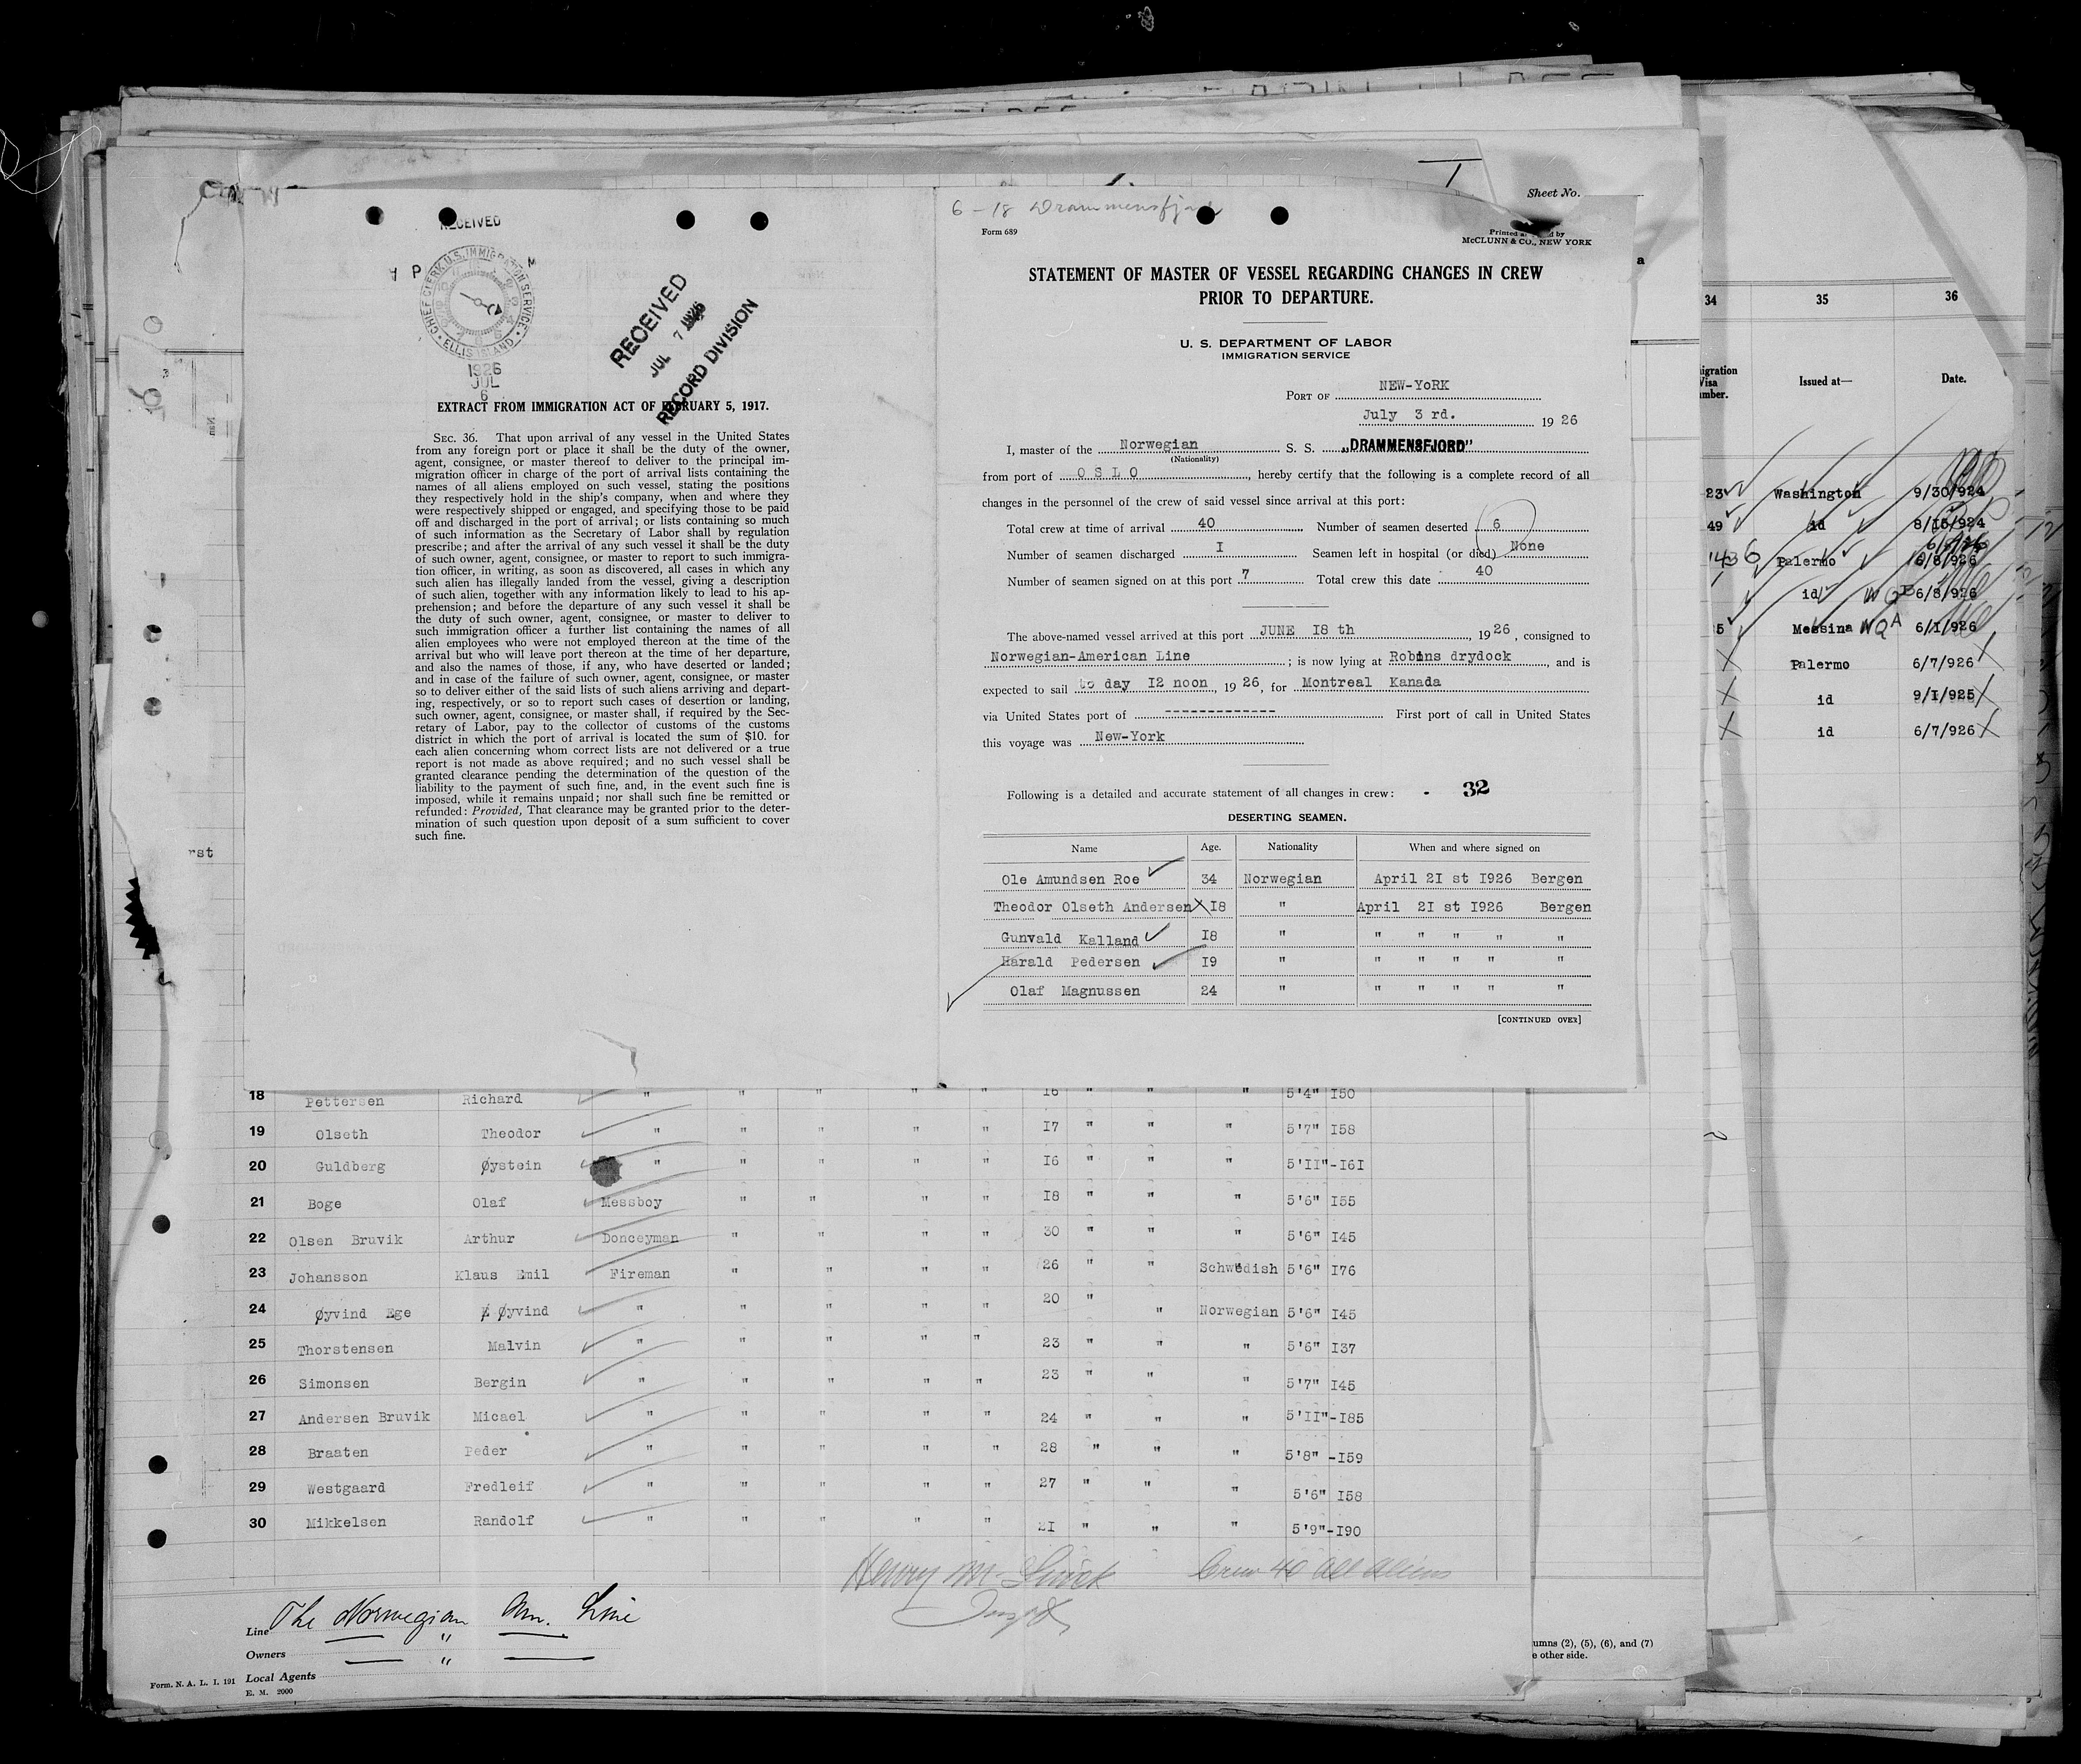 RECEIVED
CHIEF CLERK U.S. IMMIGRATION SERVICE
ELLIS ISLAND
1926
JUL
6
RECEIVED
JUL 7 1926
RECORD DIVISION
EXTRACT FROM IMMIGRATION ACT OF FEBRUARY 5, 1917.
SEC. 36. That upon arrival of any vessel in the United States
from any foreign port or place it shall be the duty of the owner,
agent, consignee, or master thereof to deliver to the principal im-
migration officer in charge of the port of arrival lists containing the
names of all aliens employed on such vessel, stating the positions
they respectively hold in the ship's company, when and where they
were respectively shipped or engaged, and specifying those to be paid
off and discharged in the port of arrival; or lists containing so much
of such information as the Secretary of Labor shall by regulation
prescribe; and after the arrival of any such vessel it shall be the duty
of such owner, agent, consignee, or master to report to such immigra-
tion officer, in writing, as soon as discovered, all cases in which any
such alien has illegally landed from the vessel, giving a description
of such alien, together with any information likely to lead to his ap-
prehension; and before the departure of any such vessel it shall be
the duty of such owner, agent, consignee, or master to deliver to
such immigration officer a further list containing the names of all
alien employees who were not employed thereon at the time of the
arrival but who will leave port thereon at the time of her departure,
and also the names of those, if any, who have deserted or landed;
and in case of the failure of such owner, agent, consignee, or master
so to deliver either of the said lists of such aliens arriving and depart-
ing, respectively, or so to report such cases of desertion or landing,
such owner, agent, consignee, or master shall, if required by the Sec-
retary of Labor, pay to the collector of customs of the customs
district in which the port of arrival is located the sum of $10. for
each alien concerning whom correct lists are not delivered or a true
report is not made as above required; and no such vessel shall be
granted clearance pending the determination of the question of the
liability to the payment of such fine, and, in the event such fine is
imposed, while it remains unpaid; nor shall such fine be remitted or
refunded: Provided, That clearance may be granted prior to the deter-
mination of such question upon deposit of a sum sufficient to cover
such fine.
Sheet No.
6-18 Drammensfjord
Form 689
Printed and by
McCLUNN & CO., NEW YORK
STATEMENT OF MASTER OF VESSEL REGARDING CHANGES IN CREW
PRIOR TO DEPARTURE.
U. S. DEPARTMENT OF LABOR
IMMIGRATION SERVICE
PORT OF NEW-YoRK
July 3 rd. 1926
I, master of the Norwegian S. S. „DRAMMENSFJORD"
(Nationality)
from port of O S L O, hereby certify that the following is a complete record of all
changes in the personnel of the crew of said vessel since arrival at this port:
Total crew at time of arrival 40 Number of seamen deserted 6
Number of seamen discharged I Seamen left in hospital (or died) None
Number of seamen signed on at this port 7 Total crew this date 40
The above-named vessel arrived at this port JUNE I8 th, 1926, consigned to
Norwegian-American Line; is now lying at Robins drydock, and is
expected to sail to day I2 noon, 1926, for Montreal Kanada
via United States port of ------------- First port of call in United States
this voyage was New-York
Following is a detailed and accurate statement of all changes in crew: - 32
DESERTING SEAMEN.
Name Age. Nationality When and where signed on
Ole Amundsen Roe 34 Norwegian April 2I st I926 Bergen
Theodor Olseth Andersen I8 " April 2I st I926 Bergen
Gunvald Kalland I8 " " " " " "
Harald Pedersen I9 " " " " " "
Olaf Magnussen 24 " " " " " "
[CONTINUED OVER]
34 35 36
igration
Visa
mber. Issued at— Date.
23 Washington 9/30/924
49 id 8/15/924
1436 Palermo 6/8/926
id 6/8/926
5 Messina 6/1/926
Palermo 6/7/926
id 9/1/925
id 6/7/926
rst
18 Pettersen Richard " " " " " 16 " " " 5'4" I50
19 Olseth Theodor " " " " " I7 " " " 5'7" I58
20 Guldberg Øystein " " " " " I6 " " " 5'II"-I6I
21 Boge Olaf Messboy " " " " I8 " " " 5'6" I55
22 Olsen Bruvik Arthur Donceyman " " " " 30 " " " 5'6" I45
23 Johansson Klaus Emil Fireman " " " " 26 " " Schwedish 5'6" I76
24 Øyvind Ege Øyvind " " " " " 20 " " Norwegian 5'6" I45
25 Thorstensen Malvin " " " " " 23 " " " 5'6" I37
26 Simonsen Bergin " " " " " 23 " " " 5'7" I45
27 Andersen Bruvik Micael " " " " " 24 " " " 5'II"-I85
28 Braaten Peder " " " " " 28 " " " 5'8" -I59
29 Westgaard Fredleif " " " " " 27 " " " 5'6" I58
30 Mikkelsen Randolf " " " " " 2I " " " 5'9"-I90
Crew 40 all aliens
Line The Norwegian Am. Line
Owners "
Local Agents "
Form. N. A. L. I. 191
E. M. 2000
umns (2), (5), (6), and (7)
e other side.